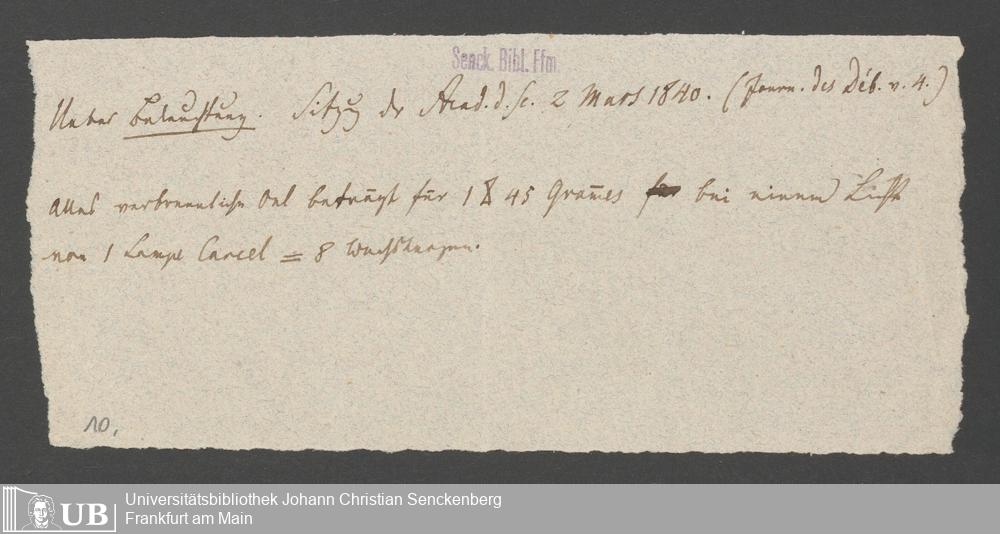 Senck. Bibl. Ffm.
Ueber Beleuchtung. Sitzg der Acad. d. Sc. 2 Mars 1840. (Journ. des Déb. v. 4.)
Alles verbrennliche Oel beträgt für 1 45 Gram̄es bei einem Licht
von 1 Lampe Carcel = 8 Wachskerzen.
10.
UB
Universitätsbibliothek Johann Christian Senckenberg
Frankfurt am Main